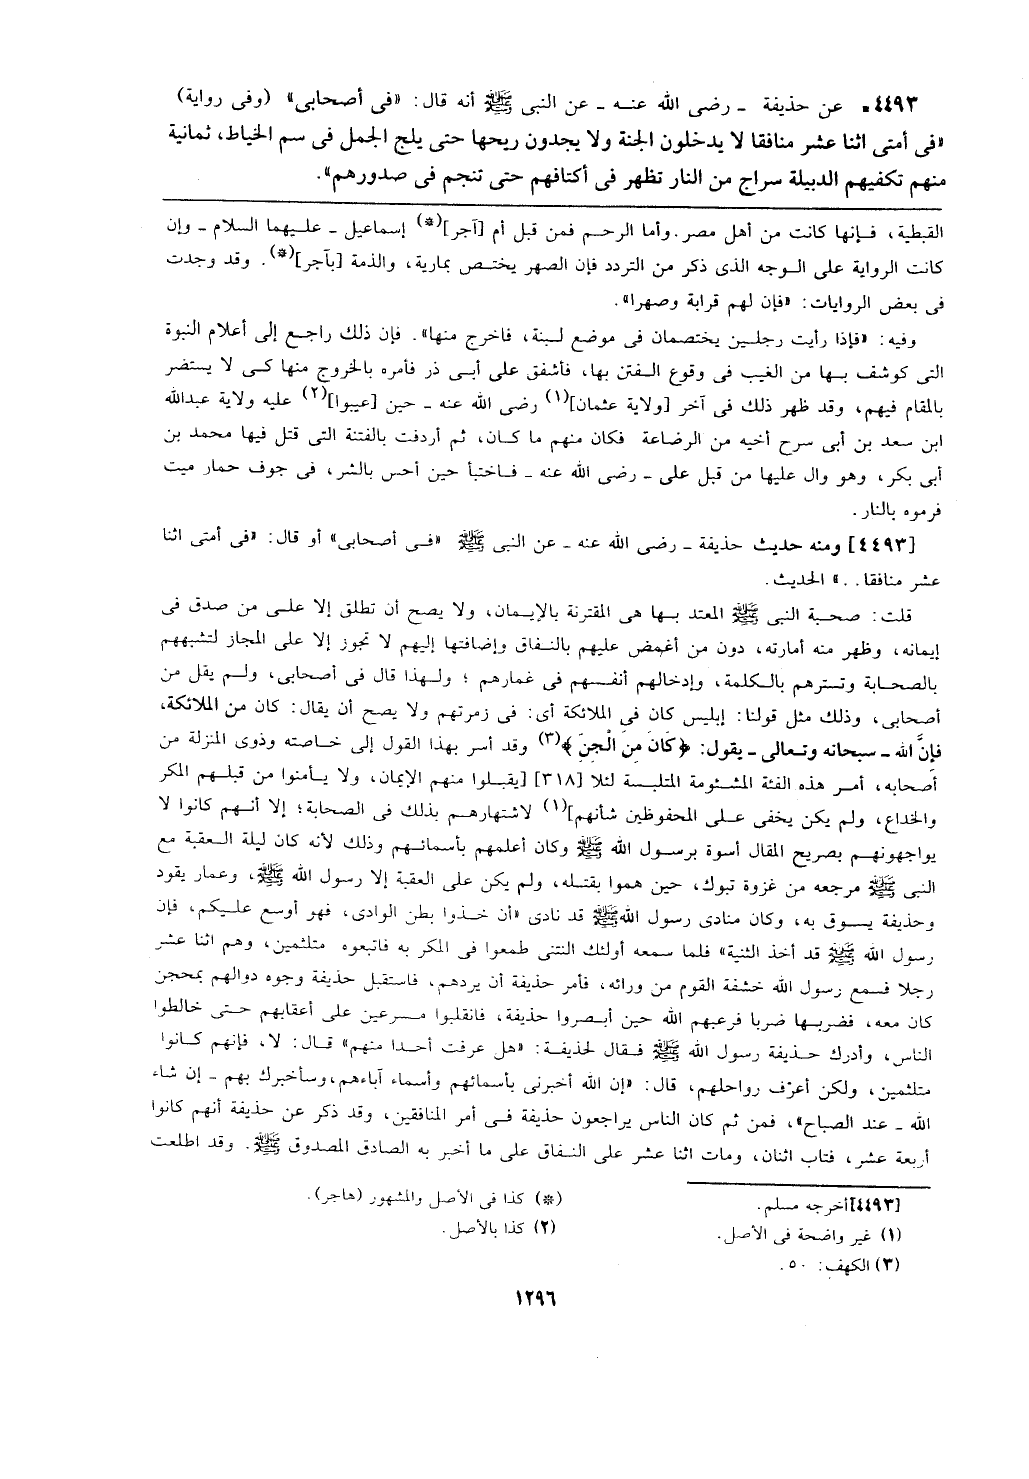 ٤٤٩٣ـ عن حذيفة ـ رضى الله عنه ـ عن النبى ﷺ أنه قال: «فى أصحابى» (وفى رواية)
«فى أمتى اثنا عشر منافقا لا يدخلون الجنة ولا يجدون ريحها حتى يلج الجمل فى سم الخياط، ثمانية
منهم تكفيهم الدبيلة سراج من النار تظهر فى أكتافهم حتى تنجم فى صدورهم».
القبطية، فإنها كانت من أهل مصر. وأما الرحم فمن قبل أم [آجر](*) إسماعيل ـ عليهما السلام ـ وإن
كانت الرواية على الوجه الذى ذكر من التردد فإن الصهر يختص بمارية، والذمة [بآجر](*). وقد وجدت
فى بعض الروايات: «فإن لهم قرابة وصهرا».
وفيه: «فإذا رأيت رجلين يختصمان فى موضع لبنة، فاخرج منها». فإن ذلك راجع إلى أعلام النبوة
التى كوشف بها من الغيب فى وقوع الفتن بها، فأشفق على أبى ذر فأمره بالخروج منها كى لا يستضر
بالمقام فيهم، وقد ظهر ذلك فى آخر [ولاية عثمان](١) رضى الله عنه ـ حين [عيبوا](٢) عليه ولاية عبدالله
ابن سعد بن أبى سرح أخيه من الرضاعة فكان منهم ما كان، ثم أردفت بالفتنة التى قتل فيها محمد بن
أبى بكر، وهو وال عليها من قبل على ـ رضى الله عنه ـ فاختبأ حين أحس بالشر، فى جوف حمار ميت
فرموه بالنار.
[٤٤٩٣] ومنه حديث حذيفة ـ رضى الله عنه ـ عن النبى ﷺ «فى أصحابى» أو قال: «فى أمتى اثنا
عشر منافقا. .» الحديث.
قلت: صحبة النبى ﷺ المعتد بها هى المقترنة بالإيمان، ولا يصح أن تطلق إلا على من صدق فى
إيمانه، وظهر منه أمارته، دون من أغمض عليهم بالنفاق وإضافتها إليهم لا تجوز إلا على المجاز لتشبههم
بالصحابة وتسترهم بالكلمة، وإدخالهم أنفسهم فى غمارهم ؛ ولهذا قال فى أصحابى، ولم يقل من
أصحابى، وذلك مثل قولنا: إبليس كان فى الملائكة أى: فى زمرتهم ولا يصح أن يقال: كان من الملائكة،
فإنَّ الله ـ سبحانه وتعالى ـ يقول: ﴿كَانَ مِنَ الْجِنِّ﴾(٣) وقد أسر بهذا القول إلى خاصته وذوى المنزلة من
أصحابه، أمر هذه الفئة المشئومة المتلبسة لئلا [٣١٨] [يقبلوا منهم الإيمان، ولا يأمنوا من قبلهم المكر
والخداع، ولم يكن يخفى على المحفوظين شأنهم](١) لاشتهارهم بذلك فى الصحابة؛ إلا أنهم كانوا لا
يواجهونهم بصريح المقال أسوة برسول الله ﷺ وكان أعلمهم بأسمائهم وذلك لأنه كان ليلة العقبة مع
النبى ﷺ مرجعه من غزوة تبوك، حين هموا بقتله، ولم يكن على العقبة إلا رسول الله ﷺ، وعمار يقود
وحذيفة يسوق به، وكان منادى رسول الله ﷺ قد نادى «أن خذوا بطن الوادى، فهو أوسع عليكم، فإن
رسول الله ﷺ قد أخذ الثنية» فلما سمعه أولئك النتنى طمعوا فى المكر به فاتبعوه متلثمين، وهم اثنا عشر
رجلا فسمع رسول الله خشفة القوم من ورائه، فأمر حذيفة أن يردهم، فاستقبل حذيفة وجوه دوالهم بمحجن
كان معه، فضربها ضربا فرعبهم الله حين أبصروا حذيفة، فانقلبوا مسرعين على أعقابهم حتى خالطوا
الناس، وأدرك حذيفة رسول الله ﷺ فقال لحذيفة: «هل عرفت أحدا منهم» قال: لا، فإنهم كانوا
متلثمين، ولكن أعرف رواحلهم، قال: «إن الله أخبرنى بأسمائهم وأسماء آباءهم، وسأخبرك بهم ـ إن شاء
الله ـ عند الصباح»، فمن ثم كان الناس يراجعون حذيفة فى أمر المنافقين، وقد ذكر عن حذيفة أنهم كانوا
أربعة عشر، فتاب اثنان، ومات اثنا عشر على النفاق على ما أخبر به الصادق المصدوق ﷺ. وقد اطلعت
[٤٤٩٣] أخرجه مسلم.
(*) كذا فى الأصل والمشهور (هاجر).
(١) غير واضحة فى الأصل.
(٢) كذا بالأصل.
(٣) الكهف: ٥٠.
١٢٩٦